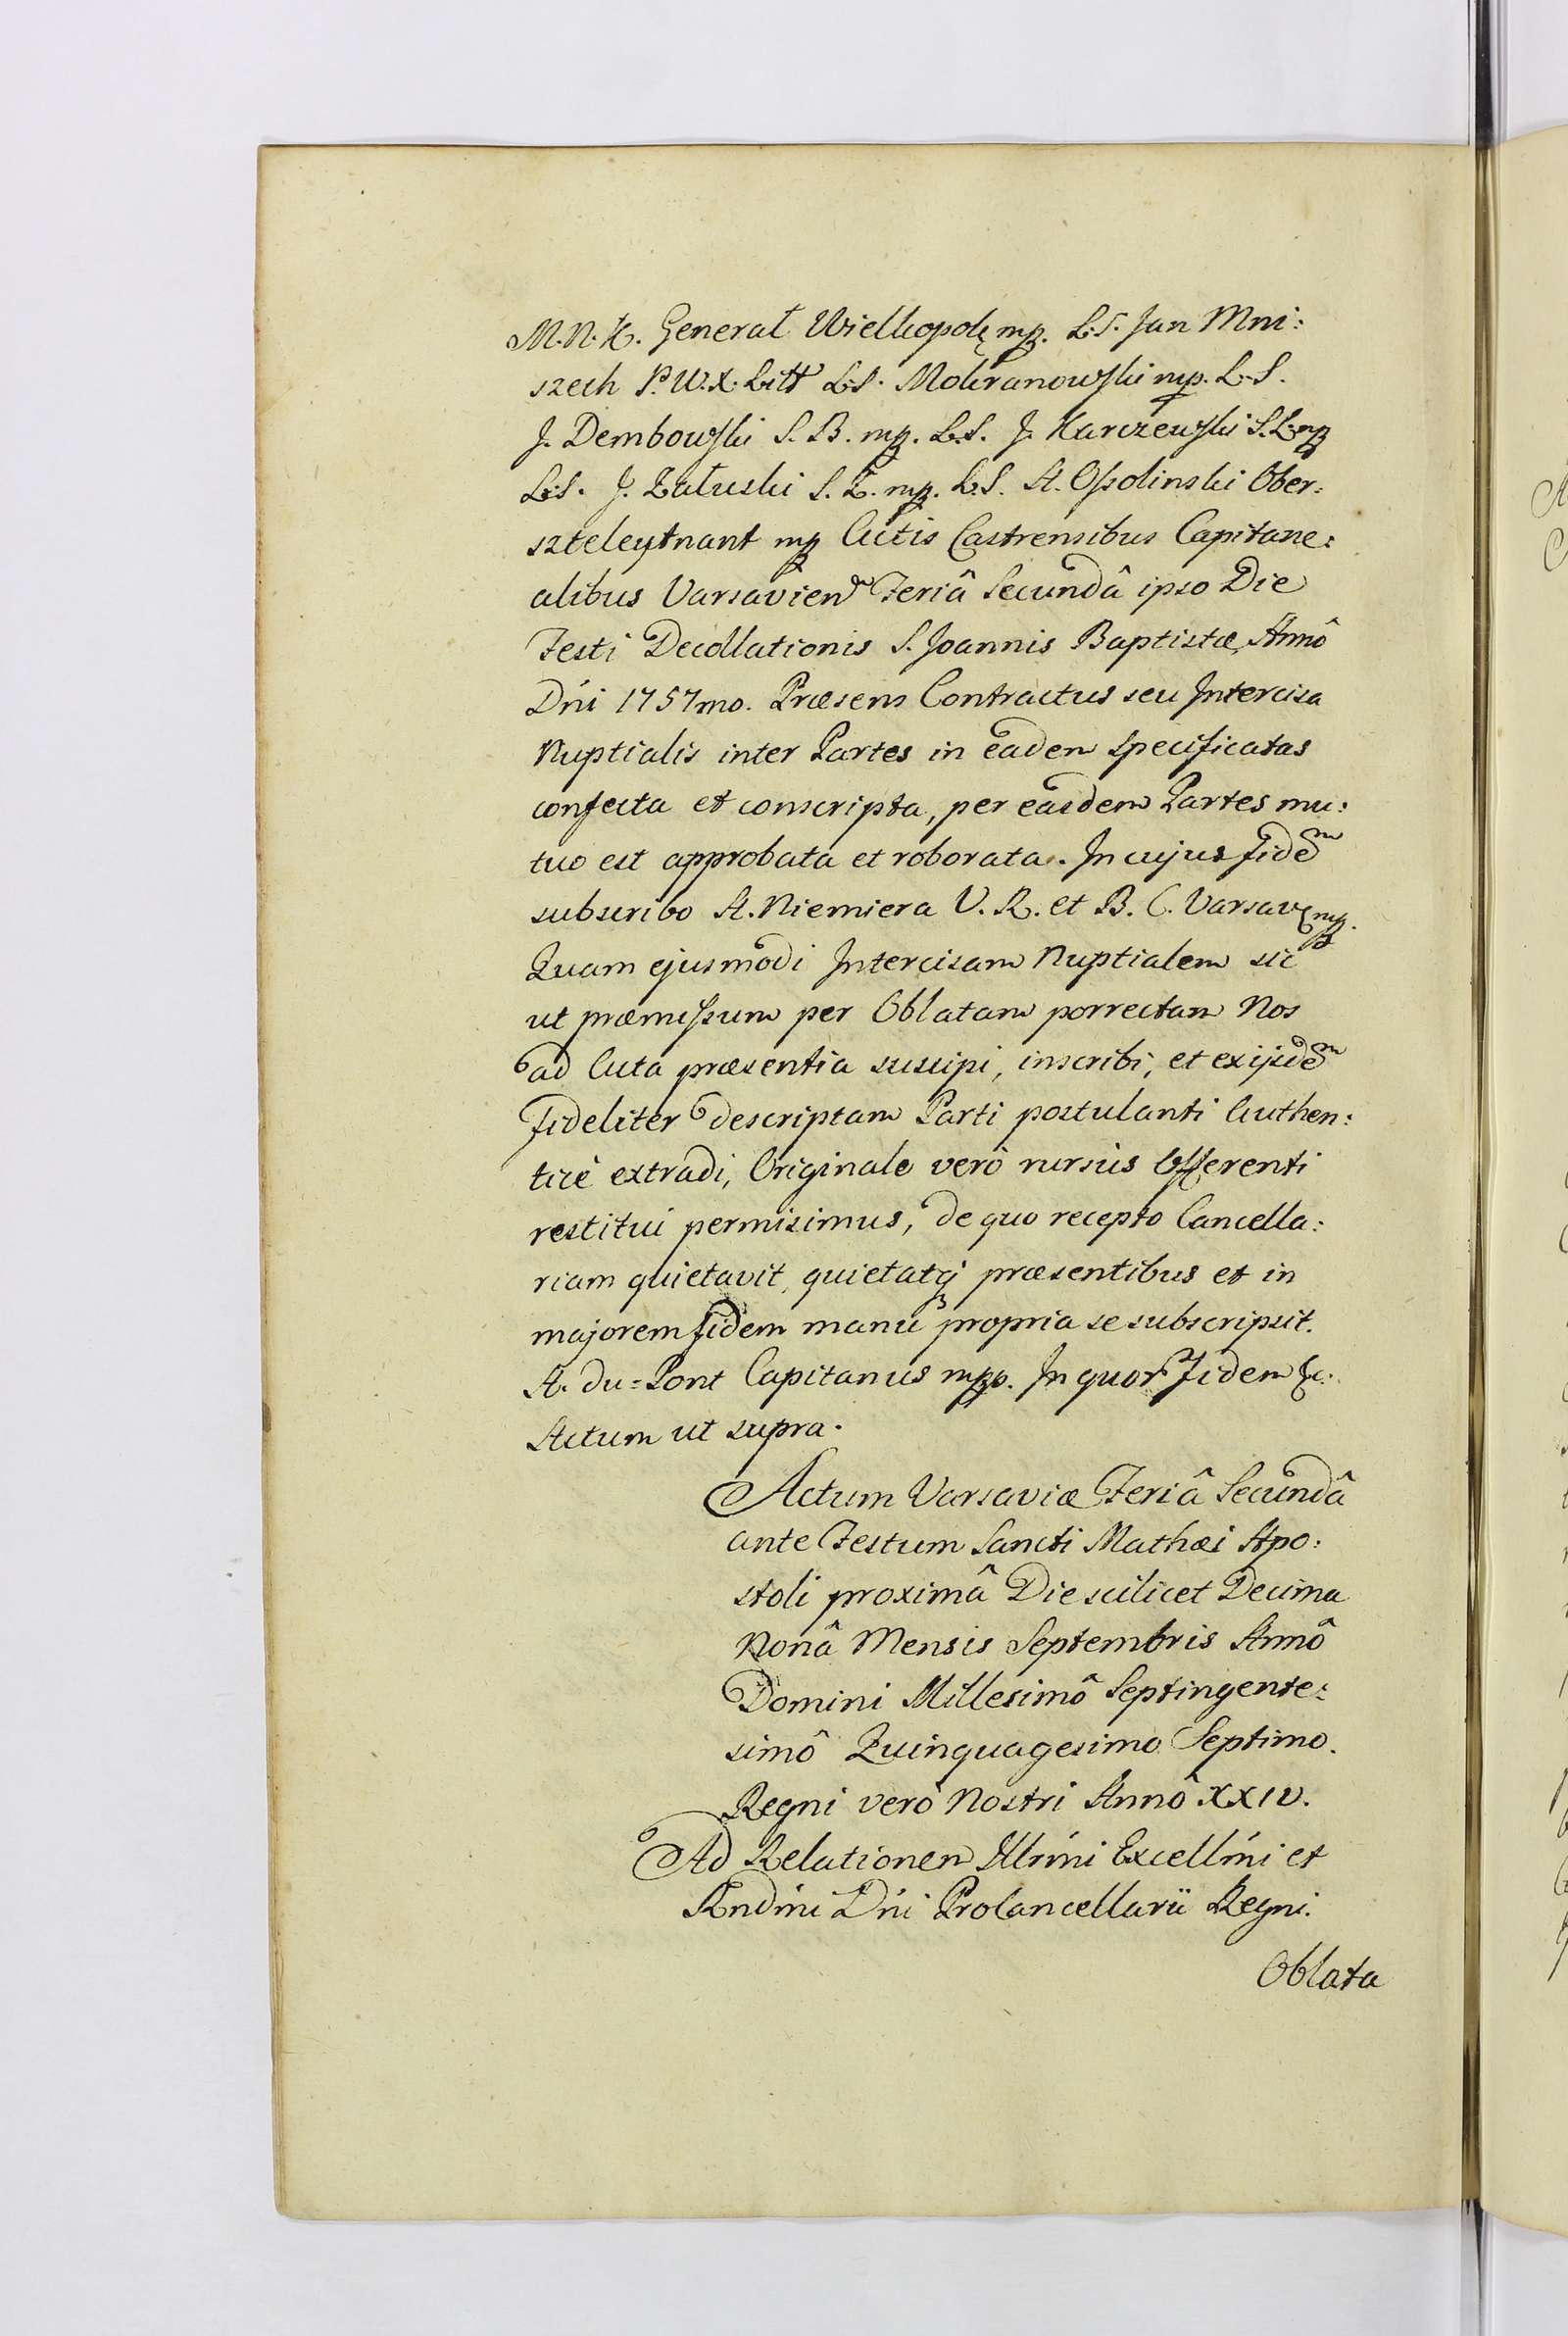 M. N. K. Generał Wielkopolę mp. L. S. Jan Mni:
szech P. W. X. Litt L. S. Mokranowski mp. L. S.
J. Dembowski S. B. mp. L. S. J. Karczewski S. L. mp
L. S. J. Załuski S. Z. mp. L. S. A. Ossolinski Ober:
szteleytnant mp Actis Castrensibus Capitane:
alibus Varsavien Feriâ Secundâ ipso Die
Festi Decollationis S. Joannis Baptistæ, Annô
Dńi 1757mo. Præsens Contractus seu Intercisa
Nuptialis inter Partes in eadem specificatas
confecta et conscripta, per easdem Partes mu:
tuo est approbata et roborata. In cujus fidem
subscribo A. Niemiera V. R. et B. C. Varsav mp.
Quam ejusmodi Intercisam Nuptialem sic
ut præmissum per Oblatam porrectam Nos
ad Acta præsentia suscipi, inscribi, et ex ijsdem
fideliter descriptam Parti postulanti Authen:
ticè extradi, Originale verò rursùs Offerenti
restitui permisimus, de quo recepto Cancella:
riam quietavit, quietatq; præsentibus et in
majorem fidem manu propria se subscripsit.
A. du=Pont Capitanus mpp. In quor Fidem &c.
Actum ut supra.
Actum Varsaviæ Feriâ Secundâ
ante Festum Sancti Mathæi Apo:
stoli proximâ Die scilicet Decima
Nonâ Mensis Septembris Annô
Domini Millesimô Septingente:
simô Quinquagesimo Septimo.
Regni verò Nostri Annô XXIV.
Ad Relationem Illrmi Excellmi et
Rndmi Dńi Procancellarii Regni.
Oblata